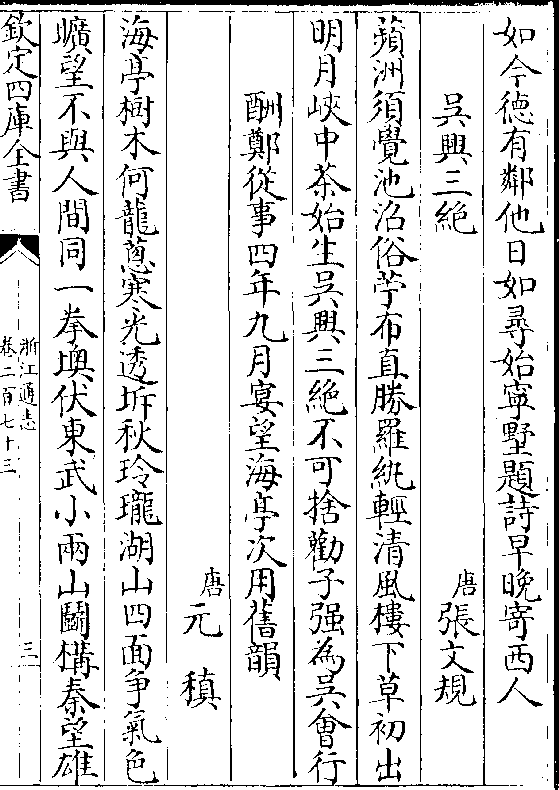 如今德有鄰他日如尋始寧墅題詩早晚寄西人
吳興三絶
唐張文規
蘋洲須覺池沼俗苧布直勝羅紈輕清風樓下草初出
明月峽中茶始生吳興三絶不可捨勸子强為吳會行
酬鄭從事四年九月宴望海亭次用舊韻
唐元稹
海亭樹木何龍蔥寒光透坼秋玲瓏湖山四面争氣色
曠望不與人間同一拳墺伏東武小兩山鬭構秦望雄
欽定四庫全書
浙江通志
卷二百七十三
三